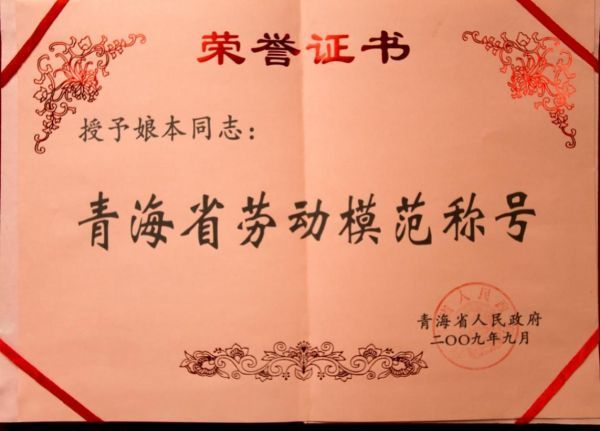 荣誉证书
授予娘本同志：
青海省劳动模范称号
青海省人民政府
二〇〇九年九月